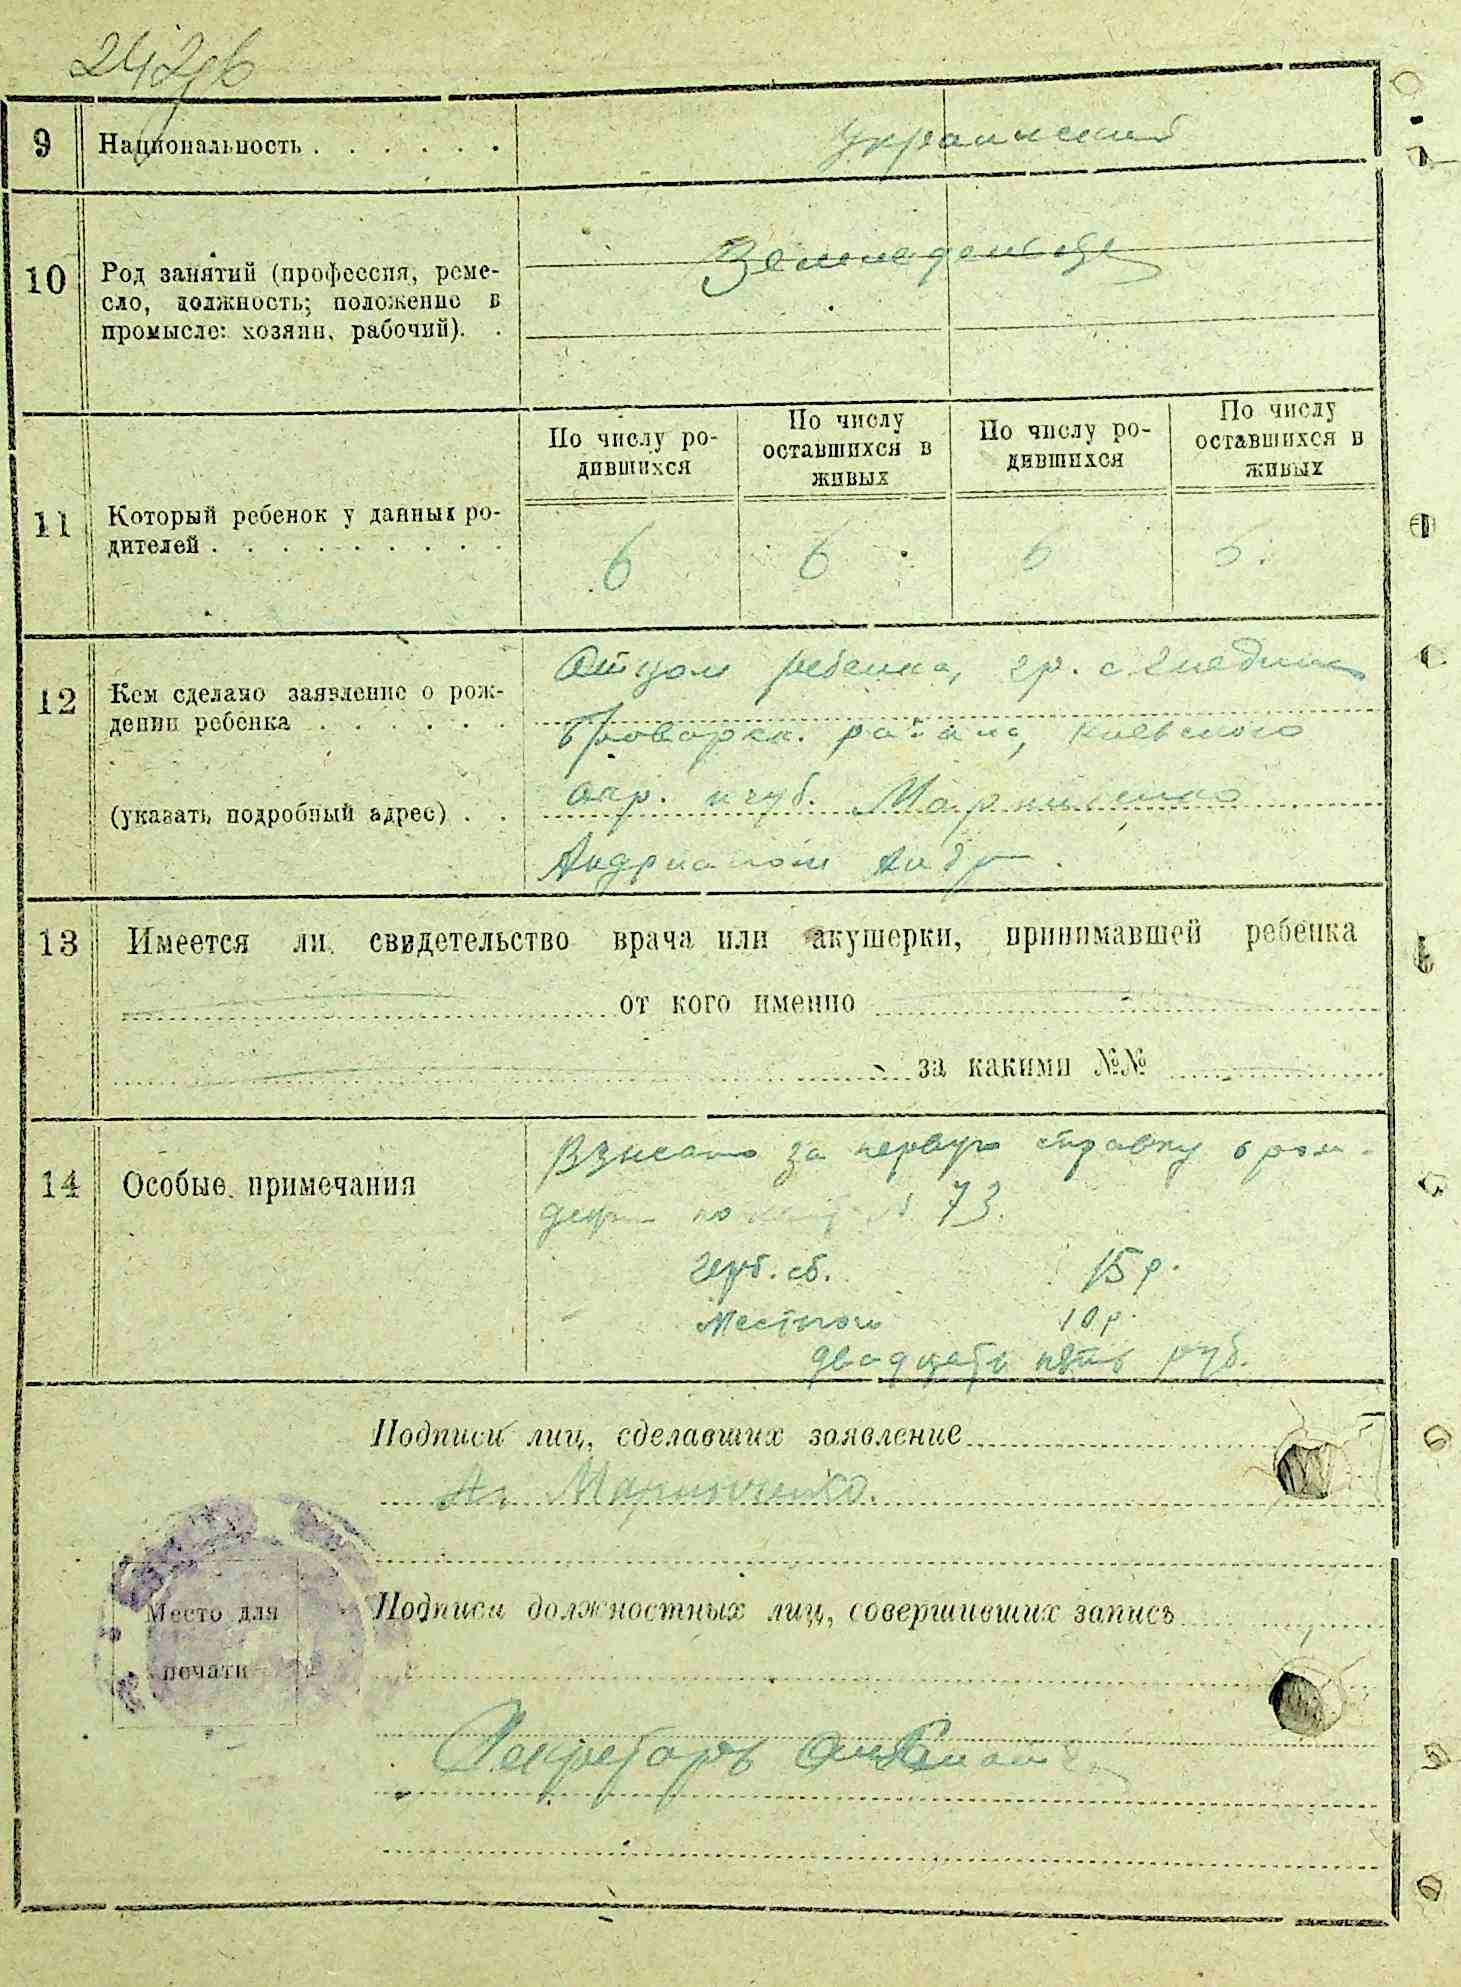 9 Национальность . . . . . .
Украинский
10 Род занятий (профессия, реме-
сло, должность; положение в
промысле: хозяин, рабочий). .
Земледельцы
11 Который ребенок у данных ро-
дителей . . . . . . . . .
По числу ро-
дившихся
По числу
оставшихся в
живых
По числу ро-
дившихся
По числу
оставшихся в
живых
6 6 6 6
12 Кем сделано заявление о рож-
дении ребенка . . . . . .
(указать подробный адрес) . .
Отцом ребенка, гр. с.
Броварск. района, Киевского
окр. и губ.
13 Имеется ли свидетельство врача или акушерки, принимавшей ребенка
от кого именно
за какими №№
14 Особые примечания
Взыскано за первую справку о рож-
по № 73.
герб. сб. 15 р.
местного 10 р.
двадцать пять руб.
Подписи лиц, сделавших заявление
Место для
печати
Подписи должностных лиц, совершивших запись
Секретарь